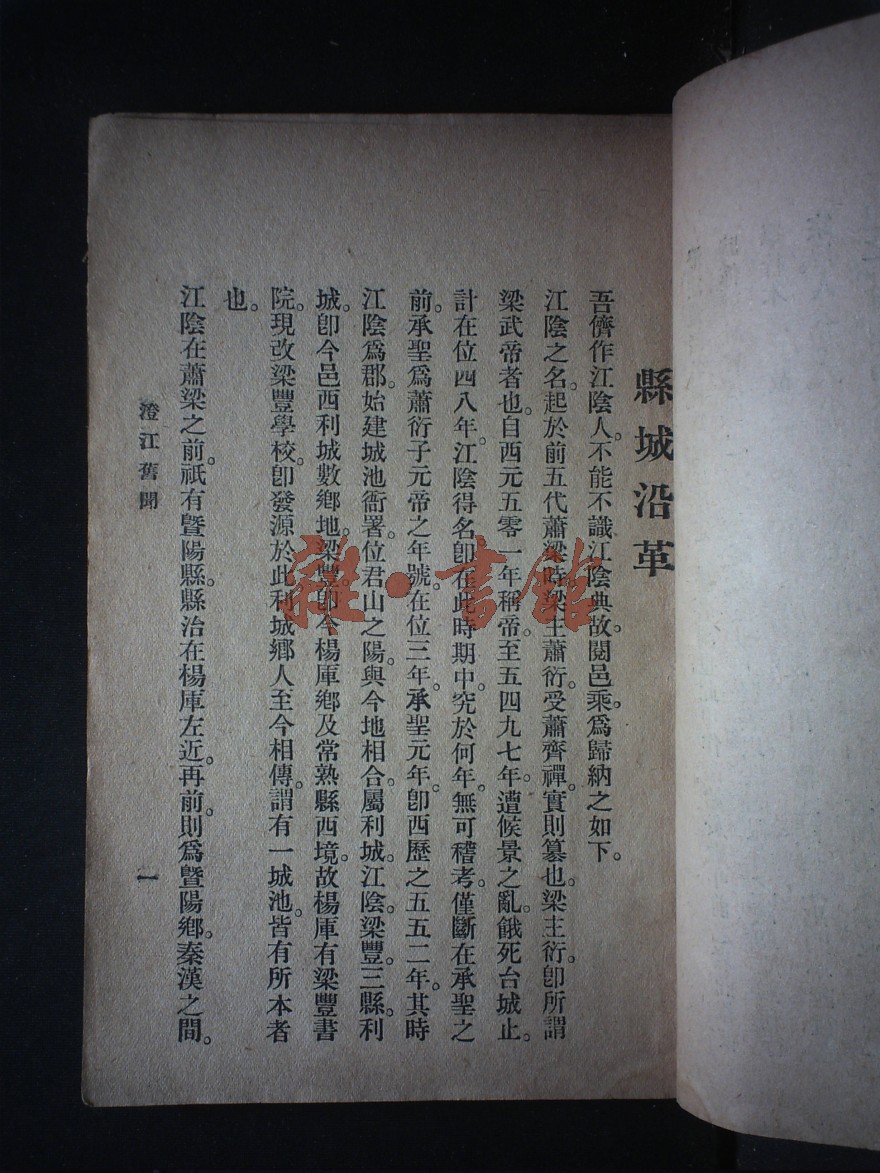 縣城沿革
吾儕作江陰人。不能不識江陰典故。閱邑乘。爲歸納之如下。
江陰之名。起於前五代蕭梁時。梁主蕭衍。受蕭齊禪。實則篡也。梁主衍。卽所謂
梁武帝者也。自西元五零一年稱帝。至五四九七年。遭候景之亂。餓死台城止。
計在位四八年。江陰得名卽在此時期中。究於何年。無可稽考。僅斷在承聖之
前。承聖爲蕭衍子元帝之年號。在位三年。承聖元年。卽西歷之五五二年。其時
江陰爲郡。始建城池衙署。位君山之陽。與今地相合。屬利城。江陰。梁豐。三縣。利
城。卽今邑西利城數鄉地。梁豐。卽今楊厙鄉及常熟縣西境。故楊厙有梁豐書
院。現改梁豐學校。卽發源於此。利城鄉人至今相傳。謂有一城池。皆有所本者
也。
江陰在蕭梁之前。祇有曁陽縣。縣治在楊厙左近。再前。則爲曁陽鄉。秦漢之間。
澄江舊聞
一
雜·書館